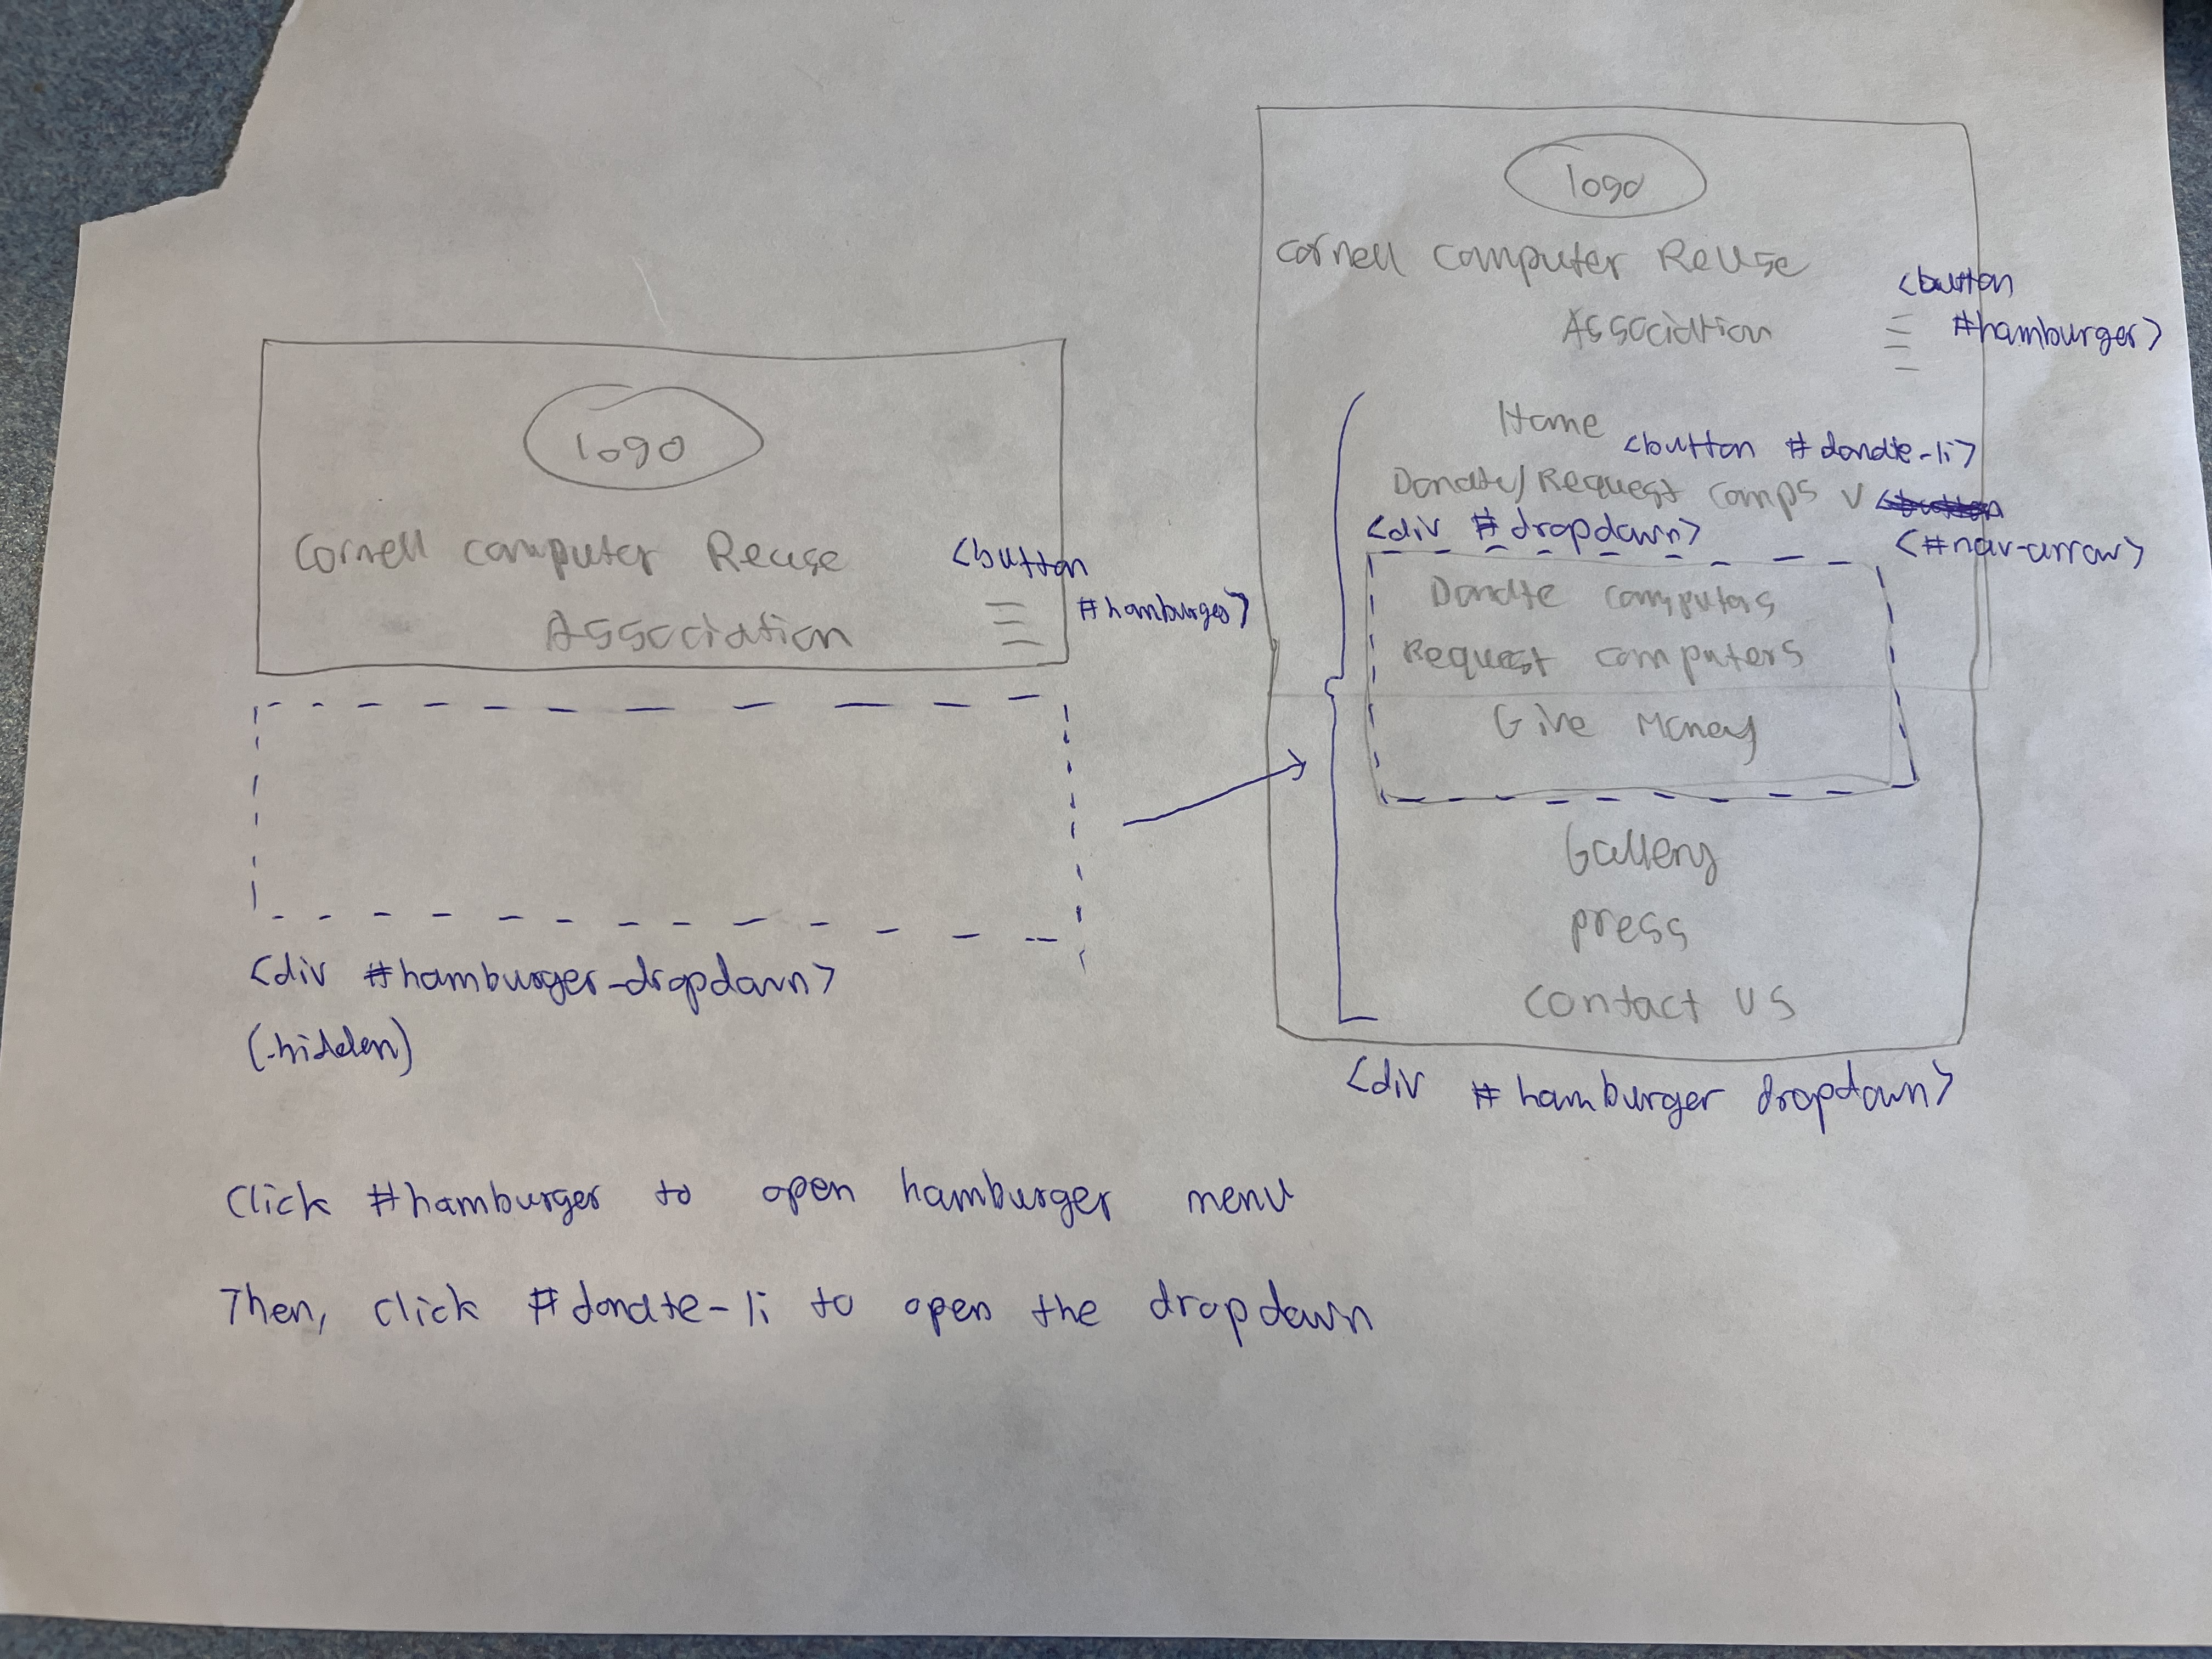 logo
Cornell Computer Reuse
Association
<button
#hamburger>
<div #hamburger-dropdown>
(.hidden)
logo
Cornell Computer Reuse
Association
<button
#hamburger>
Home
<button #donate-li>
Donate/Request comps v
<button
<#nav-arrow>
<div #dropdown>
Donate computers
Request computers
Give Money
Gallery
press
contact us
<div #hamburger dropdown>
Click #hamburger to open hamburger menu
Then, click #donate-li to open the dropdown